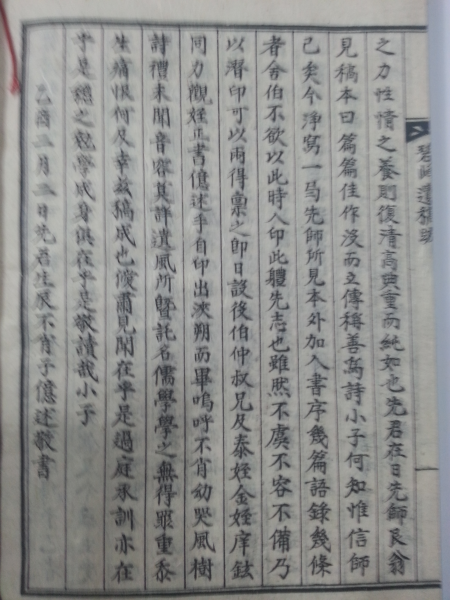 之力性情之養則復清高典重而純如也先君在日先師艮翁
見稿本曰篇篇佳作沒而立傳稱善爲詩小子何知惟信師
已矣今淨寫一局先師所見本外加入書序幾篇語錄幾條
者舍伯不欲以此時入印此體先志也雖然不虞不容不備乃
以潛印可以兩得稟之卽日設役伯仲叔兄及泰姪金姪庠鉉
同力觀姪正書億述乎自印出浹朔而畢嗚呼不肖幼哭風樹
詩禮未聞音容莫詳遺風所曁託名儒學學之無得罪重忝
生痛恨何及幸玆稿成也愾肅見聞在乎是過庭承訓亦在
乎是總之勉學成身俱在乎是敬讀哉小子
乙酉二月二日先君生辰不肖子億述敬書
遺稿跋